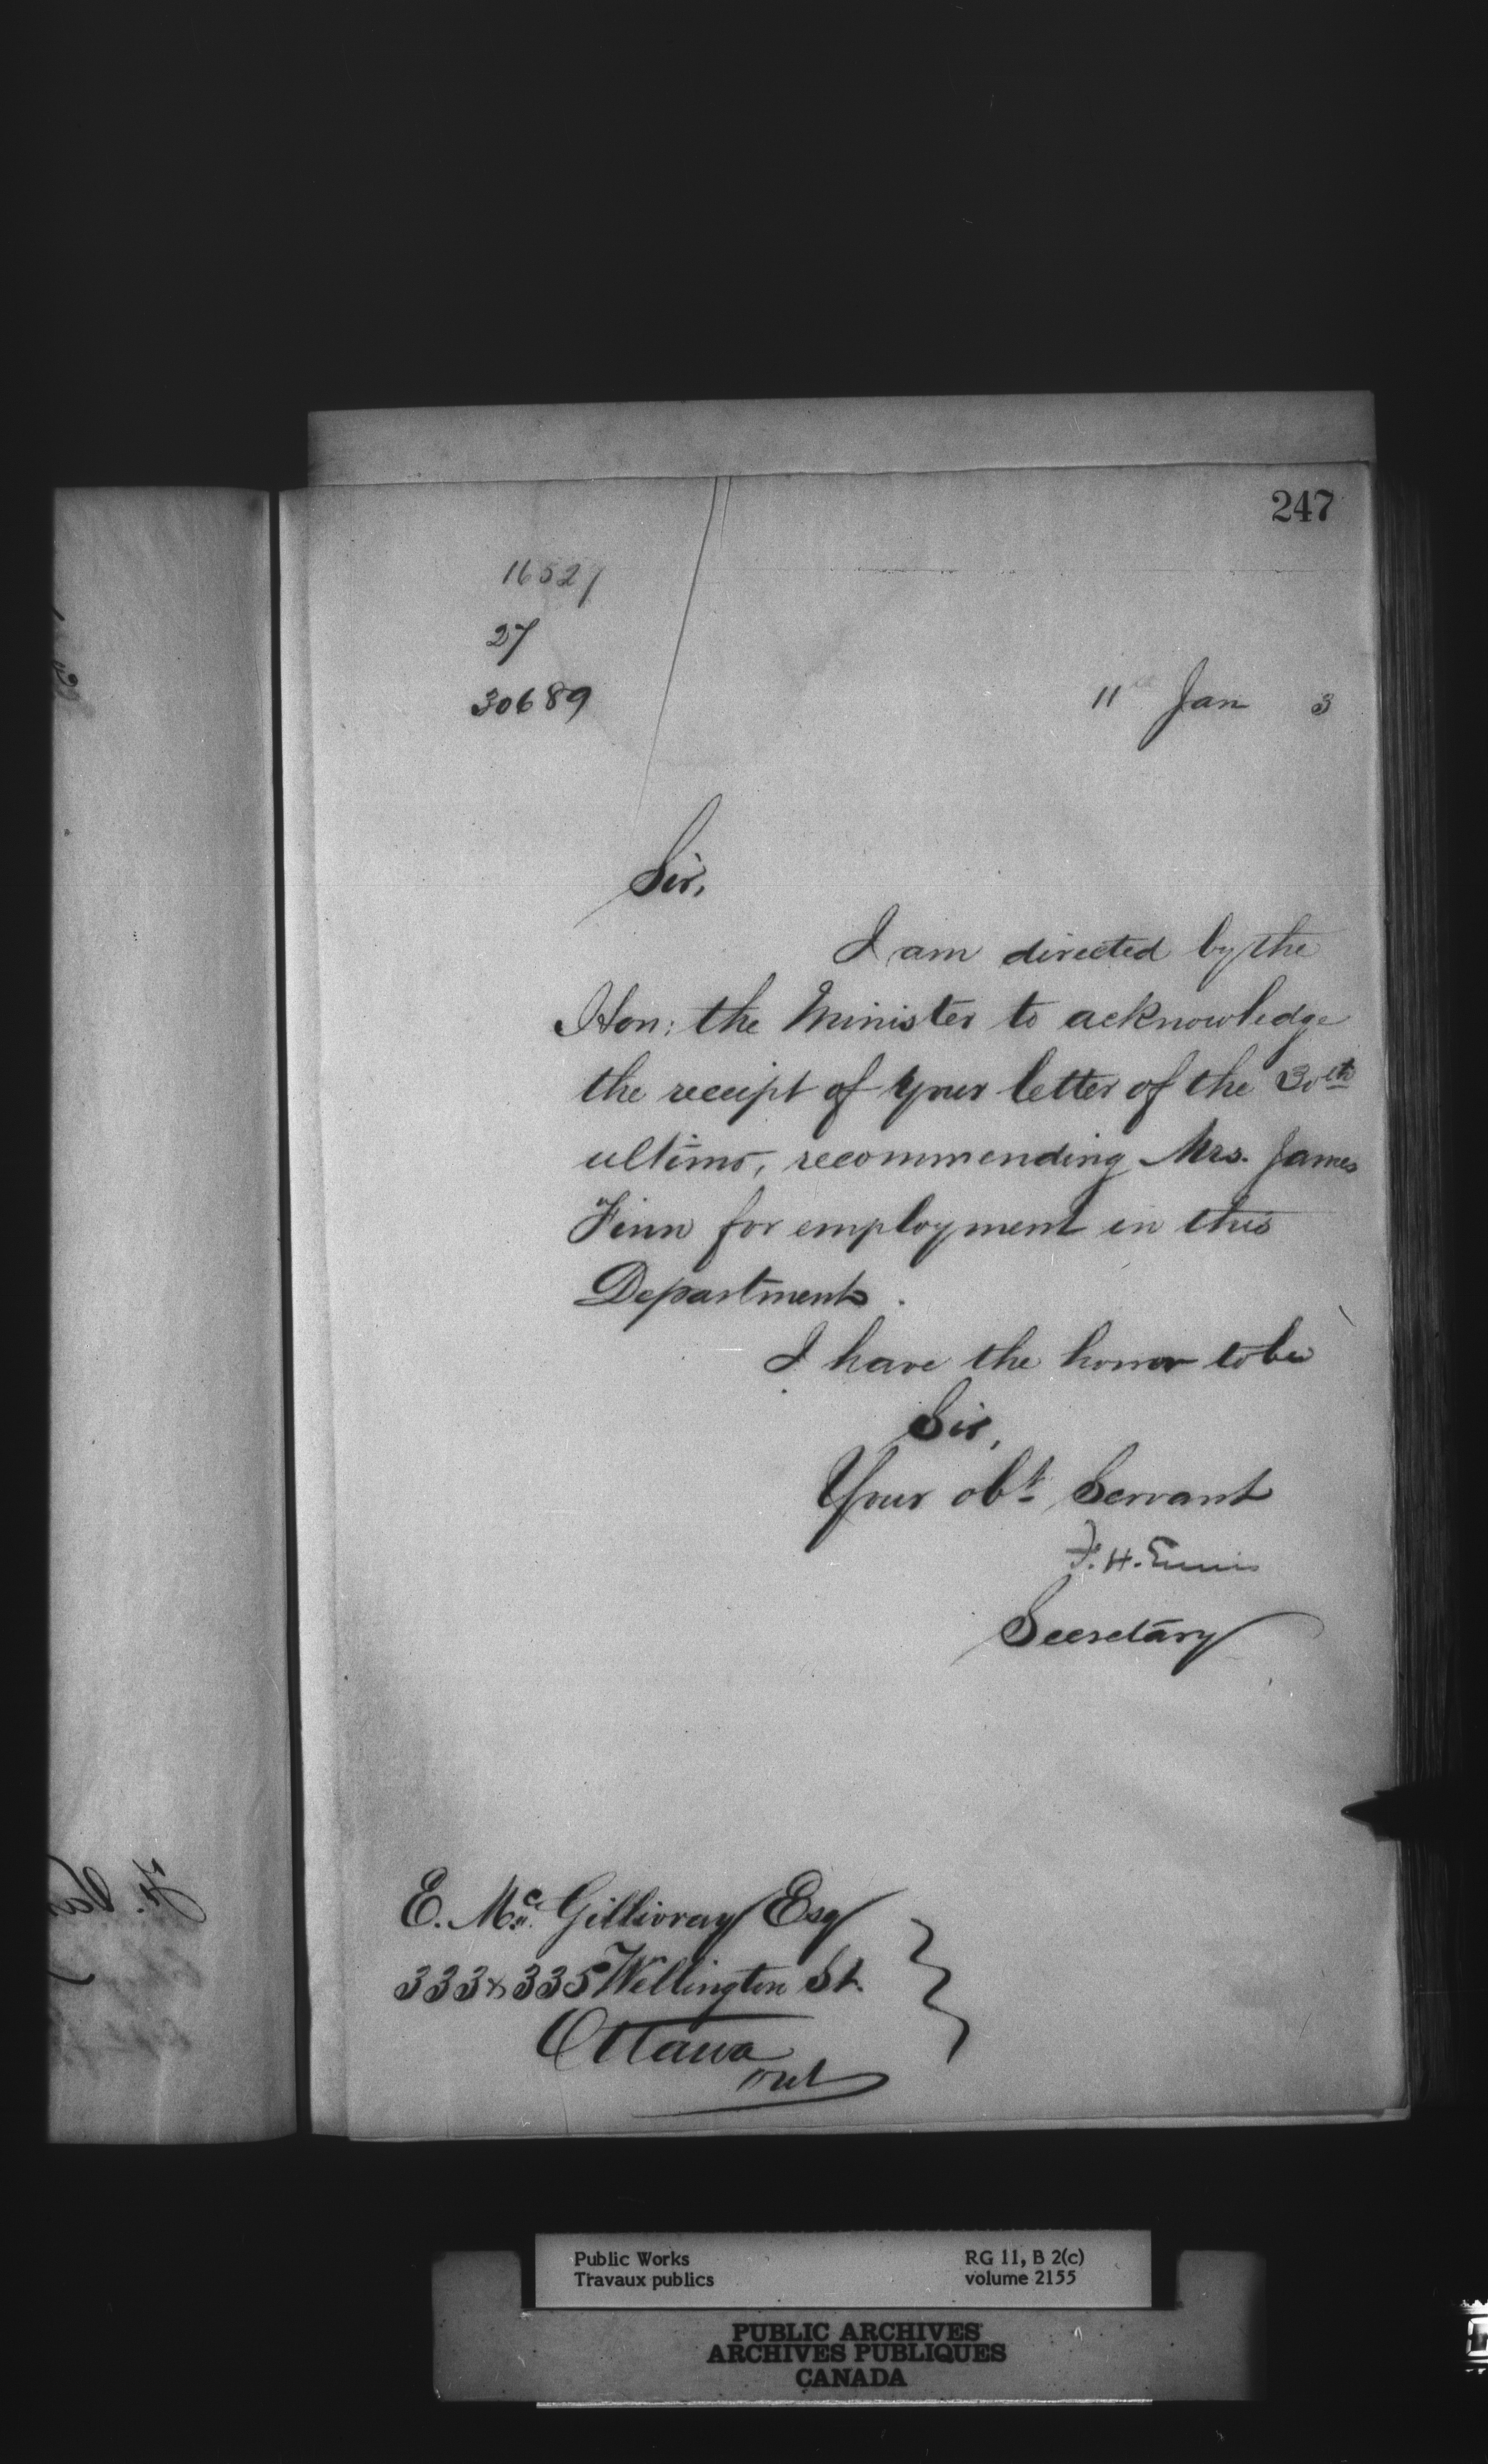 247
16527
27
30689
11th Jan 3
Sir,
I am directed by the
Hon: the Minister to acknowledge
the receipt of your letter of the 30th
ultimo, recommending Mrs. James
Finn for employment in this
Department.
I have the honor to be
Sir,
Your obt Servant
F. H. Ennis
Secretary
E. Mc. Gillivray Esq
333 & 335 Wellington St.
Ottawa
Ont
Public Works
Travaux publics
RG 11, B 2(c)
volume 2155
PUBLIC ARCHIVES
ARCHIVES PUBLIQUES
CANADA